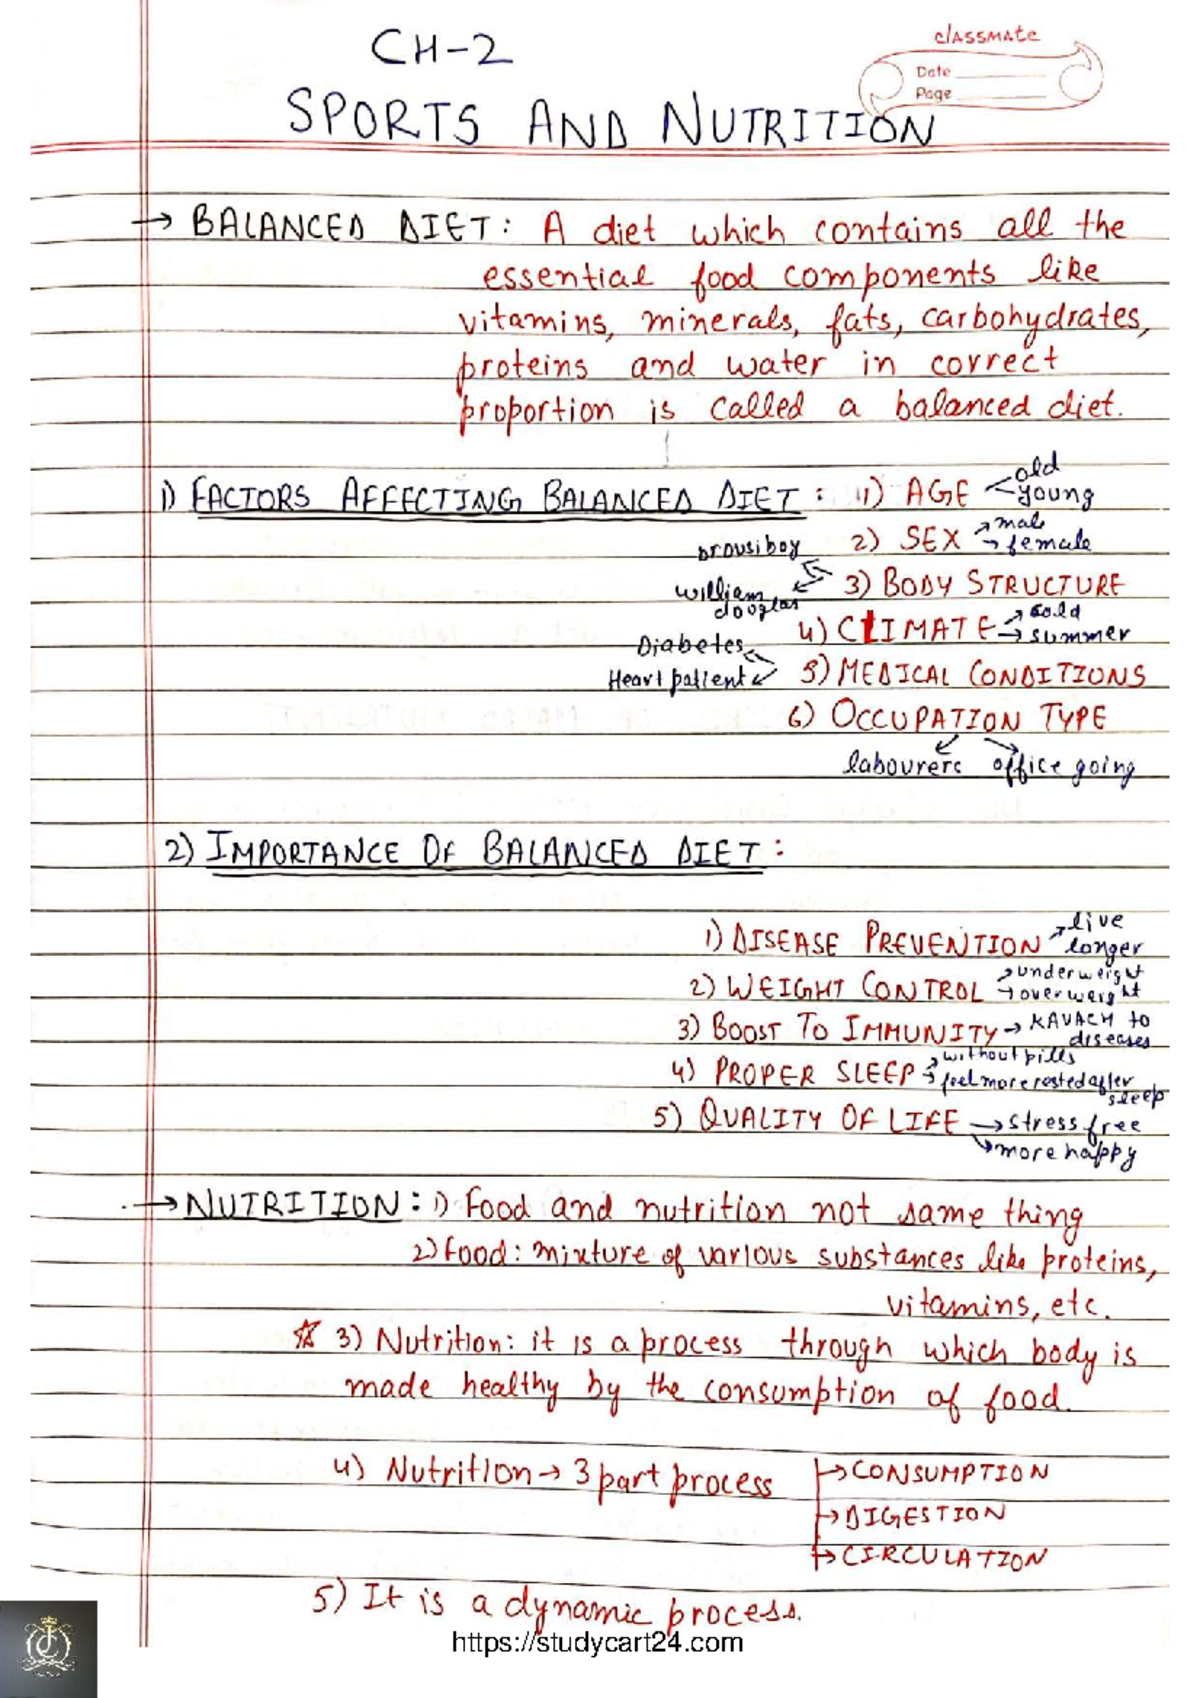 CH-2
classmate
Date
Page
SPORTS AND NUTRITION
→ BALANCED DIET: A diet which contains all the
essential food components like
vitamins, minerals, fats, carbohydrates,
proteins and water in correct
proportion is called a balanced diet.
1) FACTORS AFFECTING BALANCED DIET: 1) AGE old
young
2) SEX → male
→ female
brousiboy
3) BODY STRUCTURE
william
douglas
4) CLIMATE → cold
→ summer
Diabetes
Heart patient 5) MEDICAL CONDITIONS
6) OCCUPATION TYPE
labourers office going
2) IMPORTANCE OF BALANCED DIET:
1) DISEASE PREVENTION → live
longer
2) WEIGHT CONTROL → underweight
→ overweight
3) BOOST TO IMMUNITY → KAVACH to
diseases
4) PROPER SLEEP → without pills
→ feel more rested after
sleep
5) QUALITY OF LIFE → stress free
→ more happy
→ NUTRITION: 1) Food and nutrition not same thing
2) Food: mixture of various substances like proteins,
vitamins, etc.
☆ 3) Nutrition: it is a process through which body is
made healthy by the consumption of food.
4) Nutrition → 3 part process → CONSUMPTION
→ DIGESTION
→ CIRCULATION
5) It is a dynamic process.
https://studycart24.com